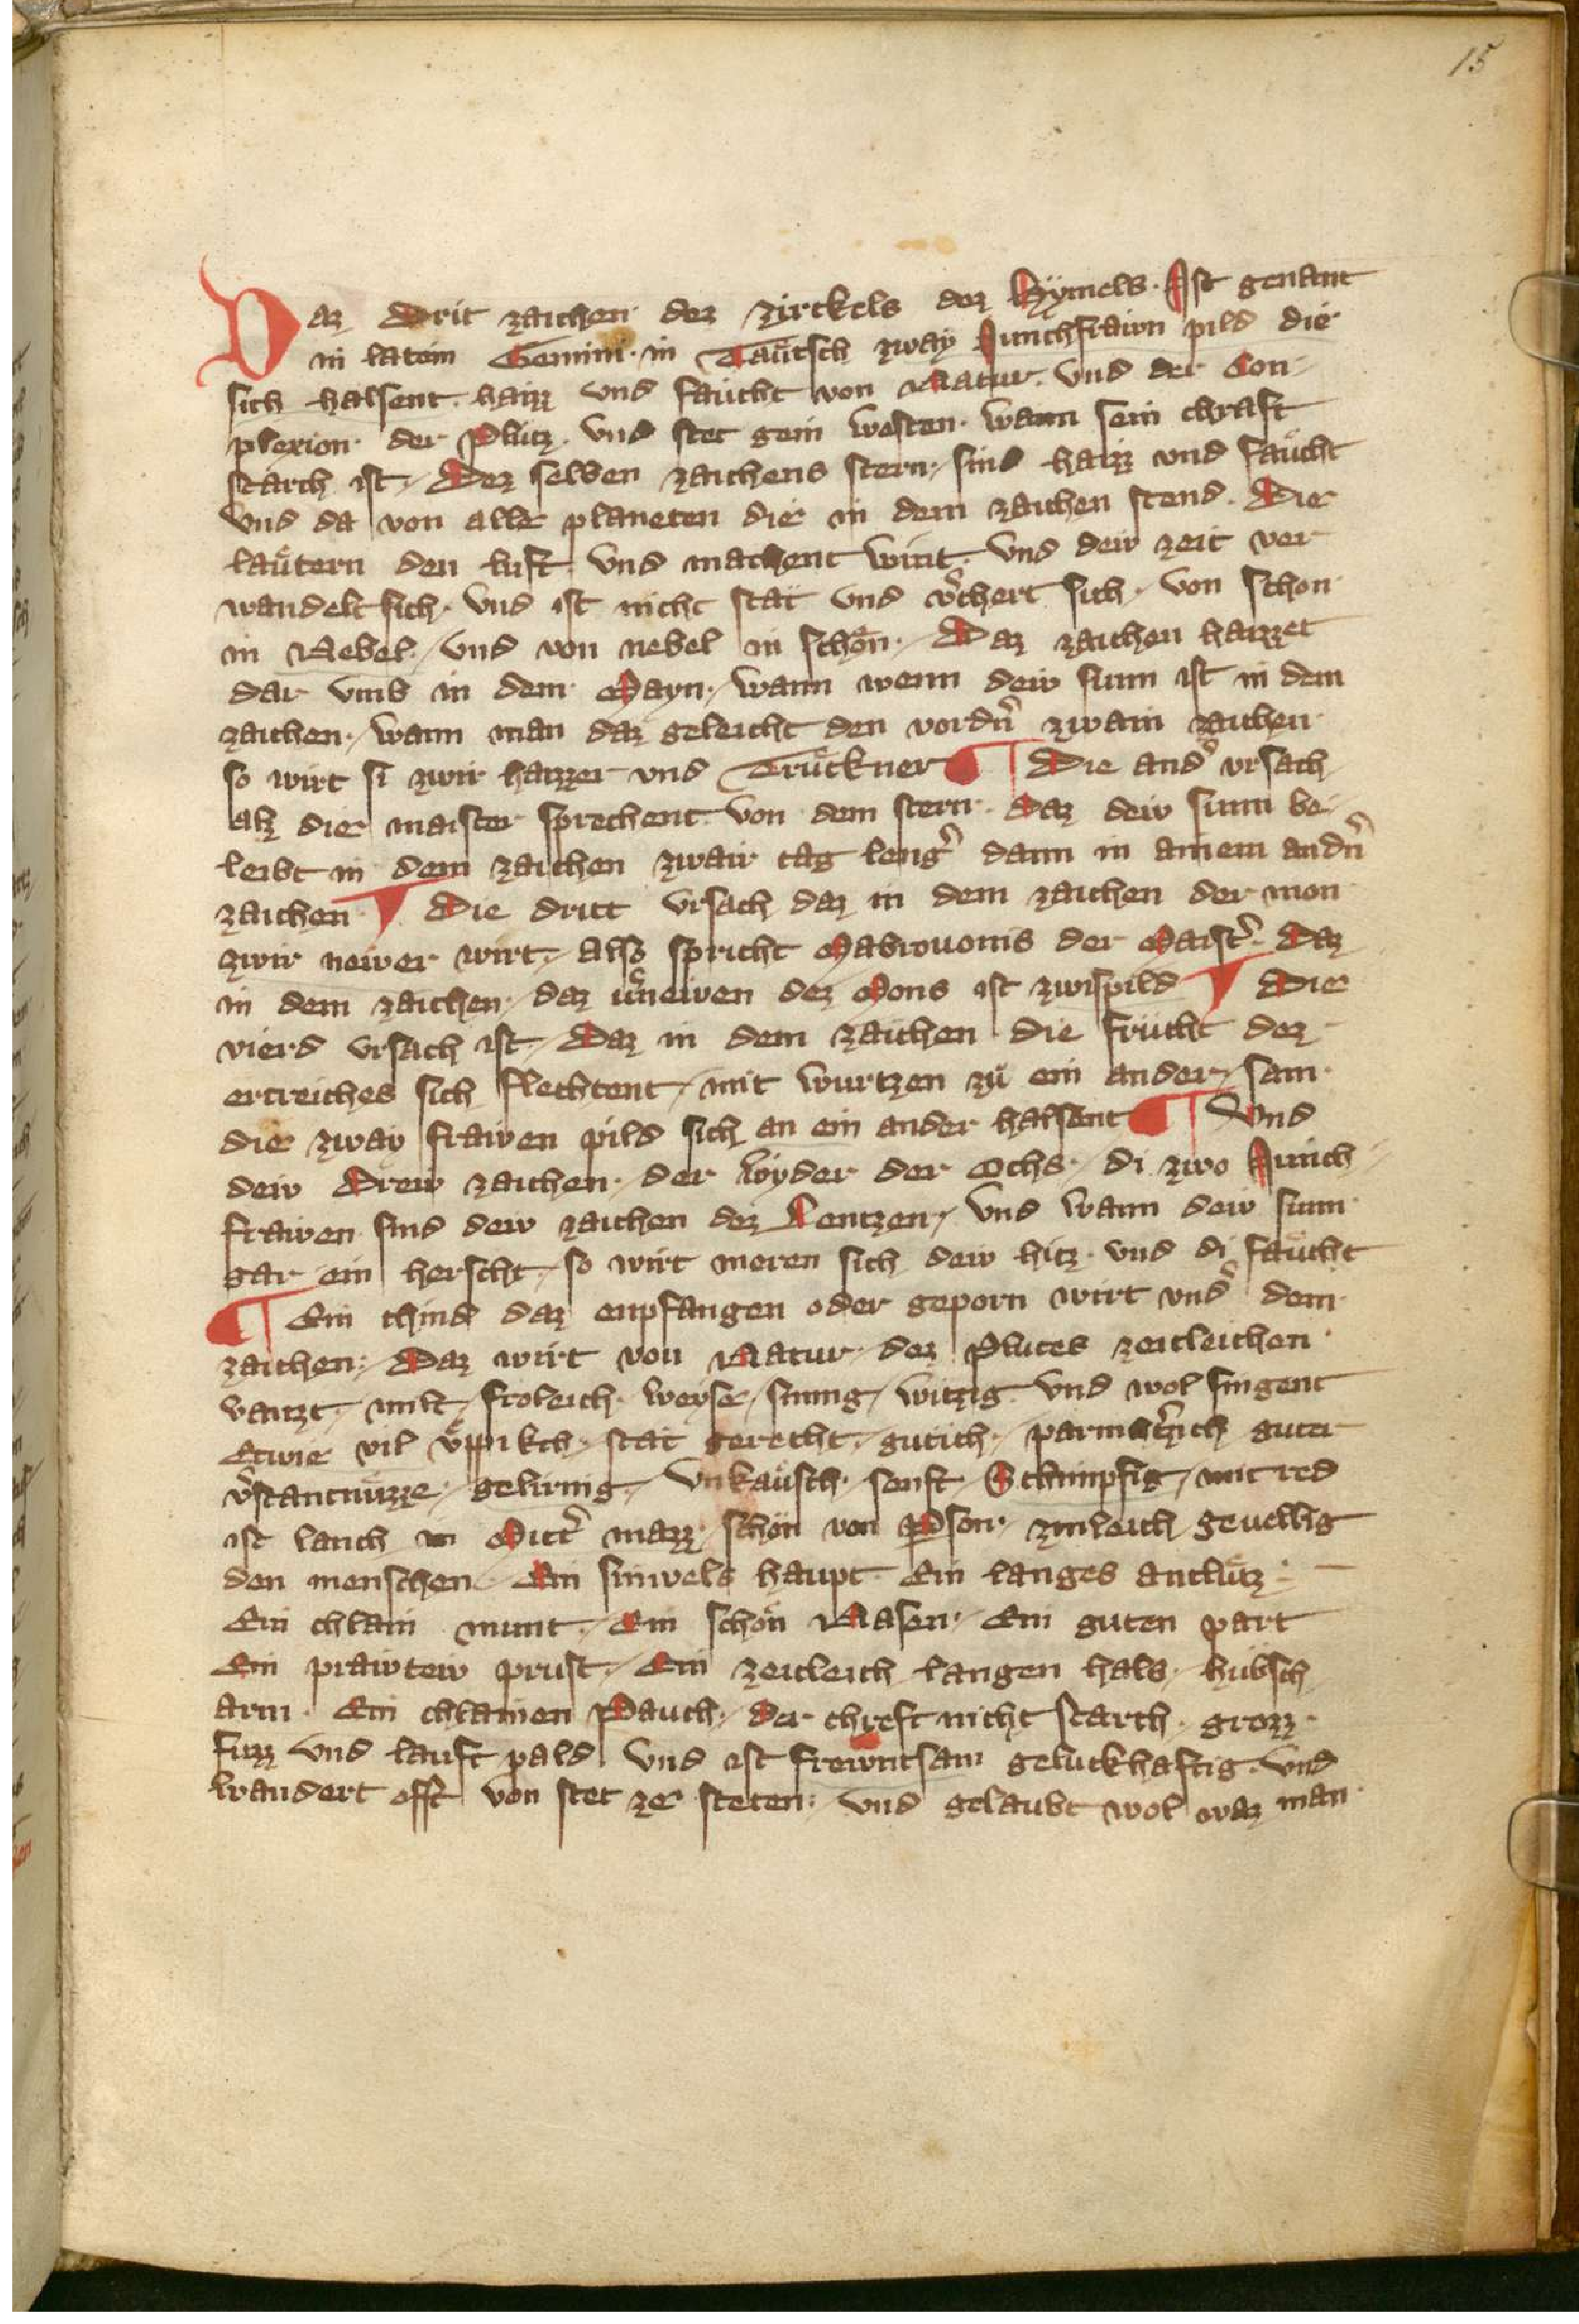 15
Daz drit zaichen dez zirckels dez Hÿmels. Ist genant
in latein Gemini. in Taͤutsch zway Junchfrawn pild die
sich halsent. haizz und faücht von Natur. Vnd der Con-
plexion der Plütz. Vnd stet gein westen. wann sein chraft
starch ist. Dez selben zaichens stern. sind haizz vnd faͤucht
Vnd da von alle planeten die in dem zaichen stend. Die
laͤutern den luft. Vnd machent wint. Vnd dew zeit ver
wandelt sich. Vnd ist nicht stät Vnd v̾chert sich. von schon
in Nebel. Vnd von nebel in schoͤn. Daz zaichen haizzet
dar vmb in dem Mayn. wann wenn dew sunn ist in dem
zaichen. wann man daz geleicht den vordn̾ zwain zaichen
so wirt si zwir haizzer vnd Trückner ¶ Die and̾ vrsach
alz die maister sprechent von dem stern. Daz dew sunn be
leibt in dem zaichen zwair tag leng̾ dann in ainem andn̾
zaichen ¶ Die dritt Vrsach daz in dem zaichen der mon
zwir newer wirt. also spricht Mabrouonis der Maist̾. Daz
in dem zaichen. daz v̾newen dez Mons ist zwispild ¶ Die
vierd Vrsach ist. Daz in dem zaichen die frücht dez
ertreiches sich flechtent. mit wurtzen zü ein ander. sam
die zway frawen pild sich an ein ander halsent ¶ Vnd
dew Drew zaichen. der Wyder der Ochs. di zwo Junch
frawen sind dew zaichen dez Lentzen. Vnd wann dew sunn
gar ein herscht. so wirt meren sich dew hitz. vnd di faͤucht
¶ Ein chind daz enpfangen oder geporn wirt vnd̾ dem
zaichen. Daz wirt von Natur. dez Plutes zeitleichen
vaizt. milt. froleich. weyse. sinnig. witzig. Vnd wol singent
Etwie vil vͤppikch. stät gerecht. gutich. parmh̾tzich guter
v̾stantnüzze. gelirnig. Vnkaͤusch. senft. Schimpfig. mit red
ist lanch in Mitt̾ mazz. schön von Pson. zimleich geuellig
den menschen. Ein sinwels haupt. Ein langes antlütz.
Ein chlain munt. Ein schön Nasen. Ein guten part
Ein prawtew prust. Ein zeitleich langen hals. hübsch
arm. Ein chlainen Pauch. der chreft nicht starch. grozz
fuzz Vnd lauft pald Vnd ist frewntsam geluckhaftig. Vnd
wandert offt von stet ze steten. Vnd gelaubt wol waz man